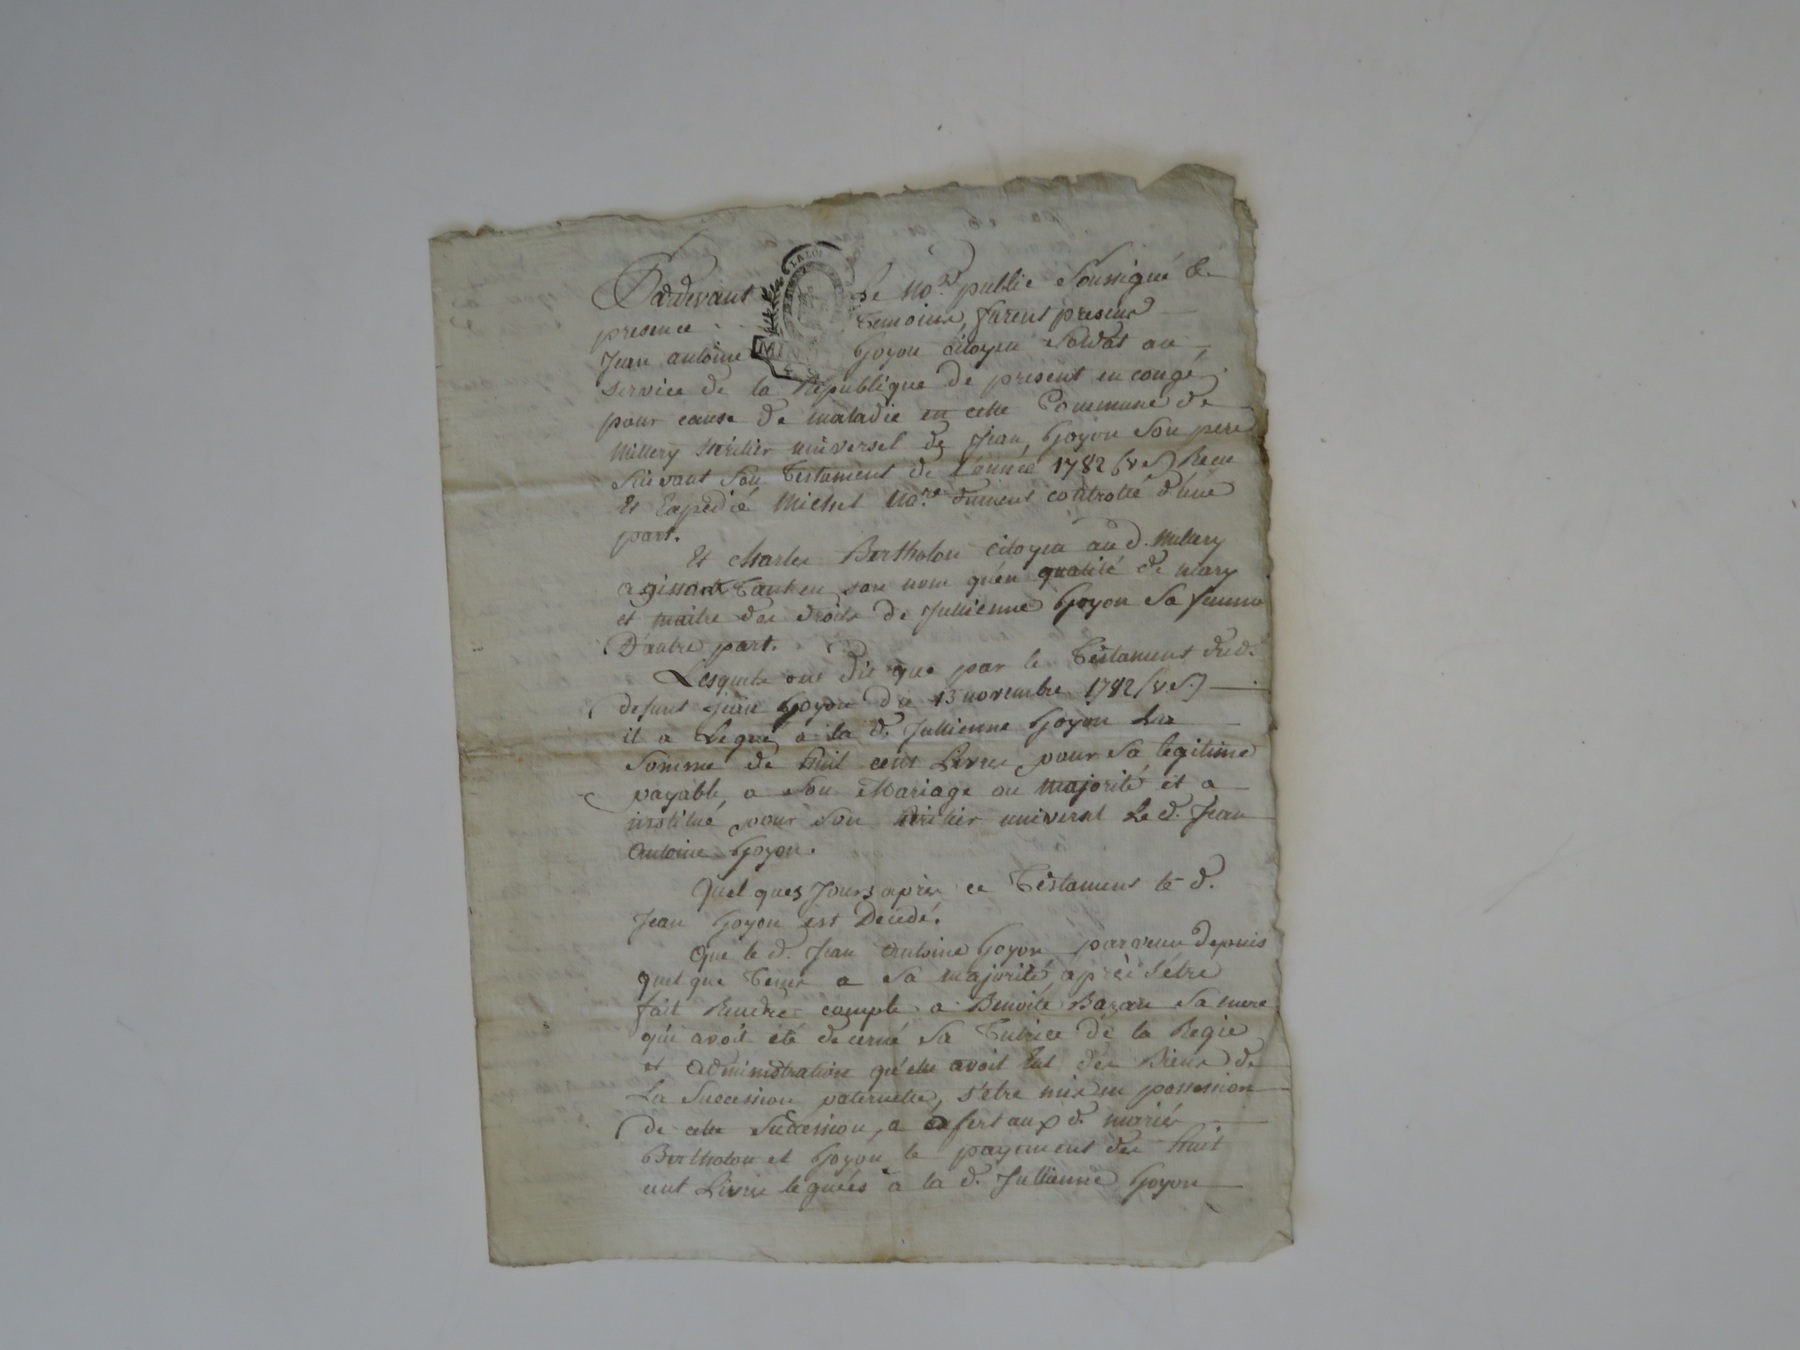 Pardevant Le No.re public Soussigné &
presence temoins, furent presens
Jean antoine Goyon citoyen Soldat au
service de la Republique de present en congé
pour cause de maladie en cette Commune de
Millery heritier universel de Jean Goyon Son pere
Suivant Son Testament de L'année 1782 (v S) Recu
Et Expedié Michel No.re dument controllé d'une
part.
Et charles Bertholon citoyen aud. Millery
agissant tant en son nom qu'en qualité de mary
et maitre des droits de Jullienne Goyon Sa femme
D'autre part.
Lesquels ont dit que par le Testament dud.
defunt Jean Goyon du 13 novembre 1782 (v S.)
il a Legué a la d. Jullienne Goyon La
Somme de huit cent Livres pour Sa legitime
payable, a Son Mariage ou majorité et a
institué pour Son heritier universel Le d. Jean
Antoine Goyon.
Quelques Jours après ce Testament le d.
Jean Goyon est Decedé.
Que le d. Jean Antoine Goyon parvenu depuis
quelque tems a Sa majorité, après s'être
fait Rendre compte a Benoite Bazan Sa mere
qui avoit été decerné Sa Tutrice de la Regie
et administration qu'elle avoit Eut des Biens de
La Succession paternelle, s'etre mis en possession
de cette Succession, a offert aux d. mariés
Bertholon et Goyon le payement des huit
cent Livres leguées a la d. Jullienne Goyon
LA LOI